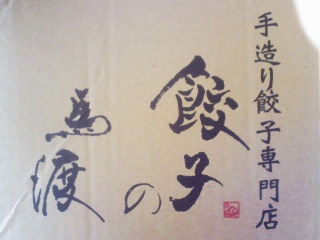 手造り餃子専門店
餃子の
馬渡